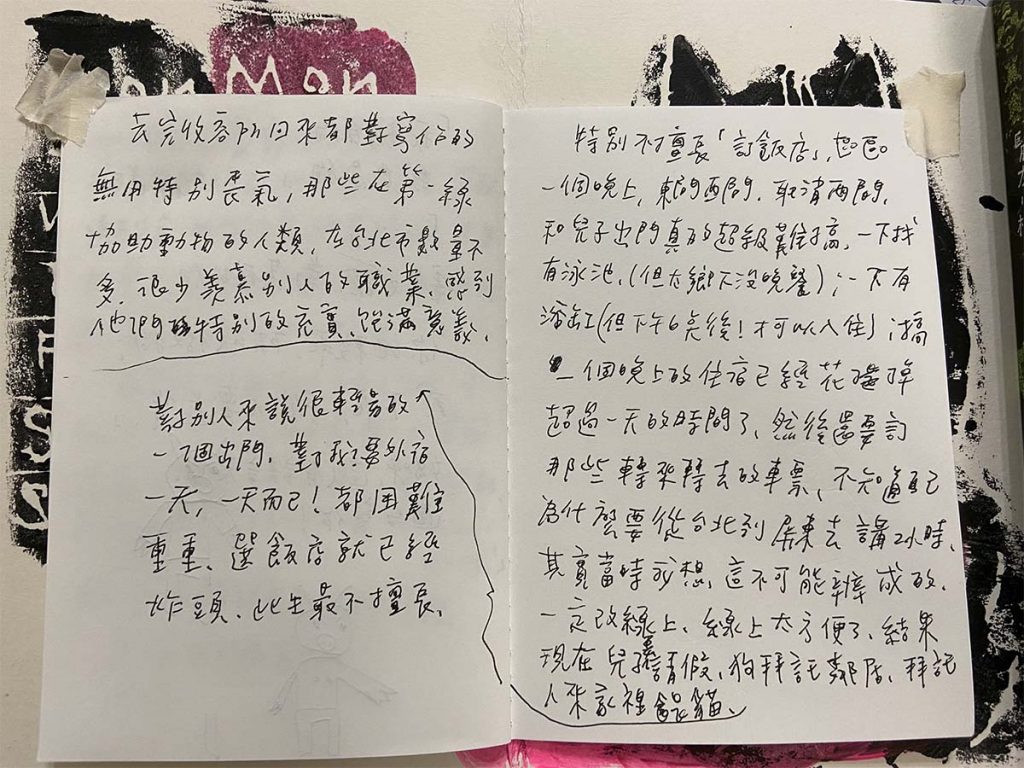 去完收容所回來都對寫作的
無用特別喪氣，那些在第一線
協助動物的人類，在台北市數量不
多，很少羨慕別人的職業，感到
他們特別的充實、飽滿意義。
對別人來說很輕易的
一個出門，對我要外宿
一天，一天而已！都困難
重重、選飯店就已經
炸頭、此生最不擅長、
特別不擅長「訂飯店」，區區
一個晚上，東問西問、取消兩間，
和兒子出門真的超級難搞，一下找
有泳池，(但太鄉下沒晚餐)；一下有
浴缸(但下午6點後！才可以入住)；搞
一個晚上的住宿已經花掉
超過一天的時間了、然後還要訂
那些轉來轉去的車票，不知道自己
為什麼要從台北到屏東去講2小時、
其實當時我想，這不可能辦成的、
一定改線上、線上太方便了、結果
現在兒子請假，狗拜託鄰居、拜託
人來家裡餵貓、
Mon